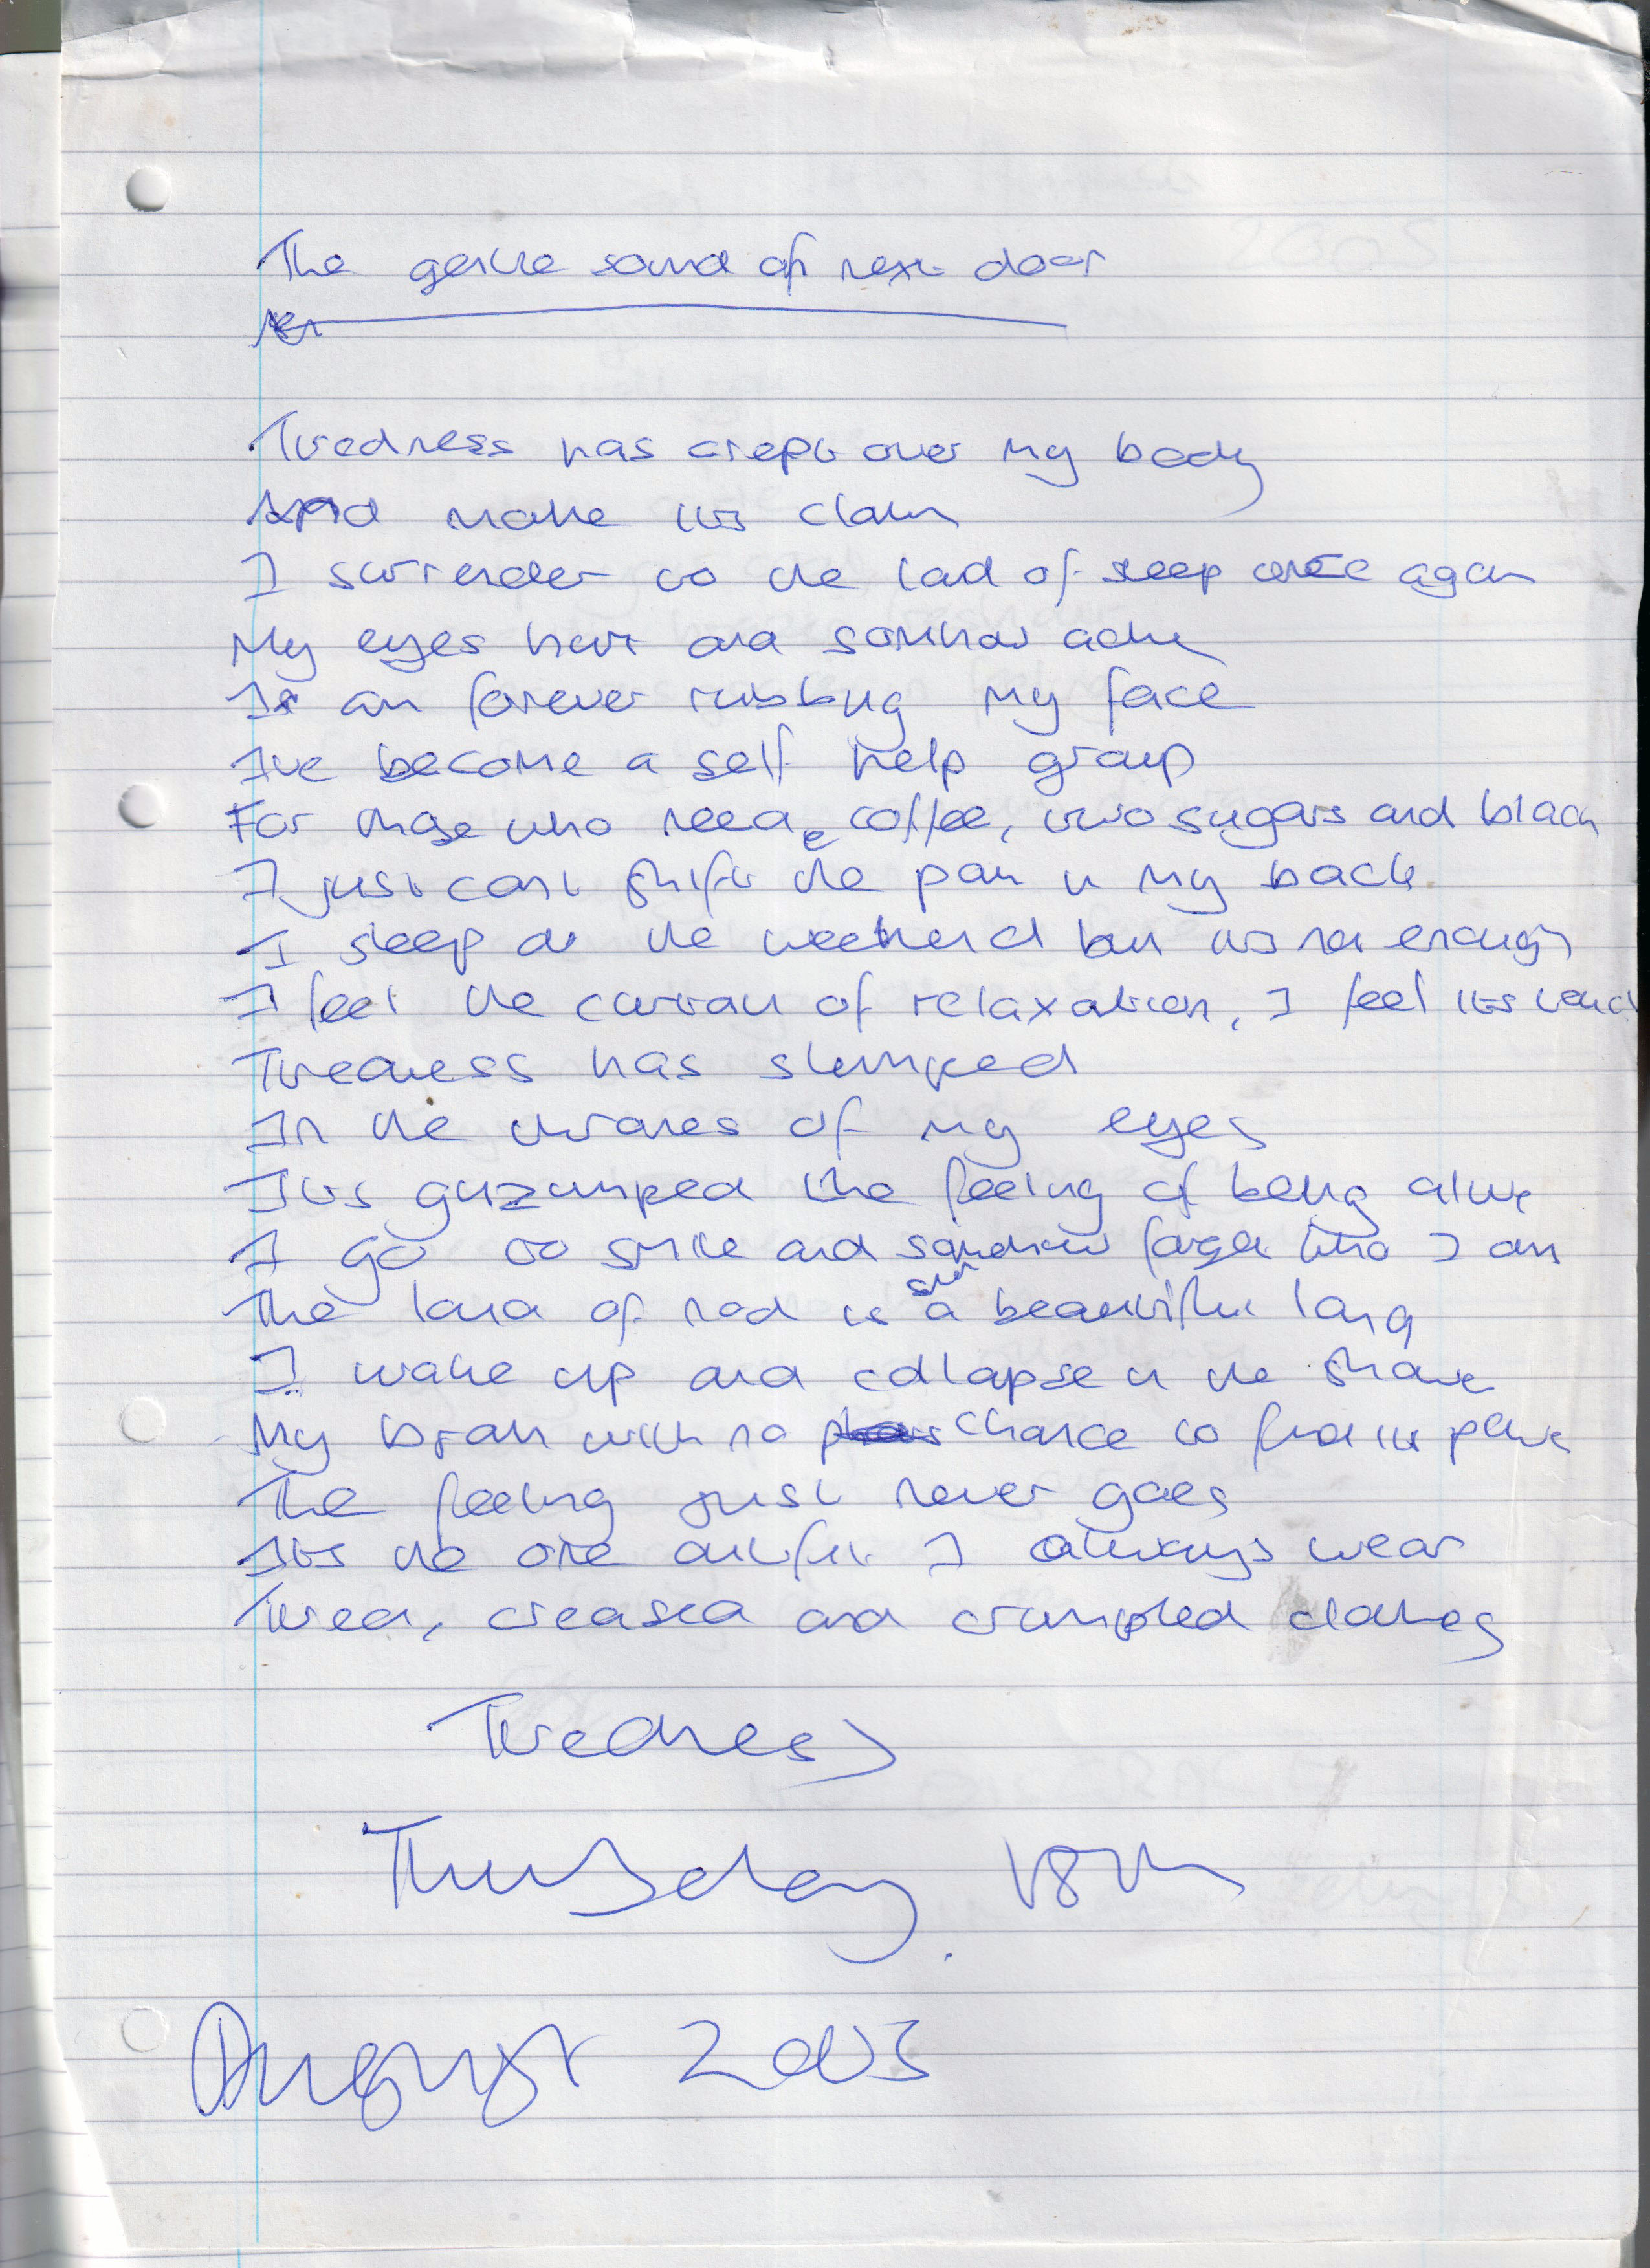 The gentle sound of next door
Tiredness has crept over my body
And make its claim
I surrender to the land of sleep once again
My eyes hurt and somhow ache
I am forever rubbing my face
Ive become a self help group
For those who need coffee, two sugars and black
I just cant shift the pain in my back
I sleep at the weekend but its not enough
I feel the curtain of relaxation, I feel its
Tiredness has slumped
In the thrones of my eyes
Its gazumped the feeling of being alive
I go to smile and somehow forget who I am
The land of nod is such a beautiful land
I wake up and collapse in the shower
My brain with no chance to find its power
The feeling just never goes
Its the one outfit I always wear
Tired, creased and crumpled clothes
Tiredness
Thursday 18th
August 2005